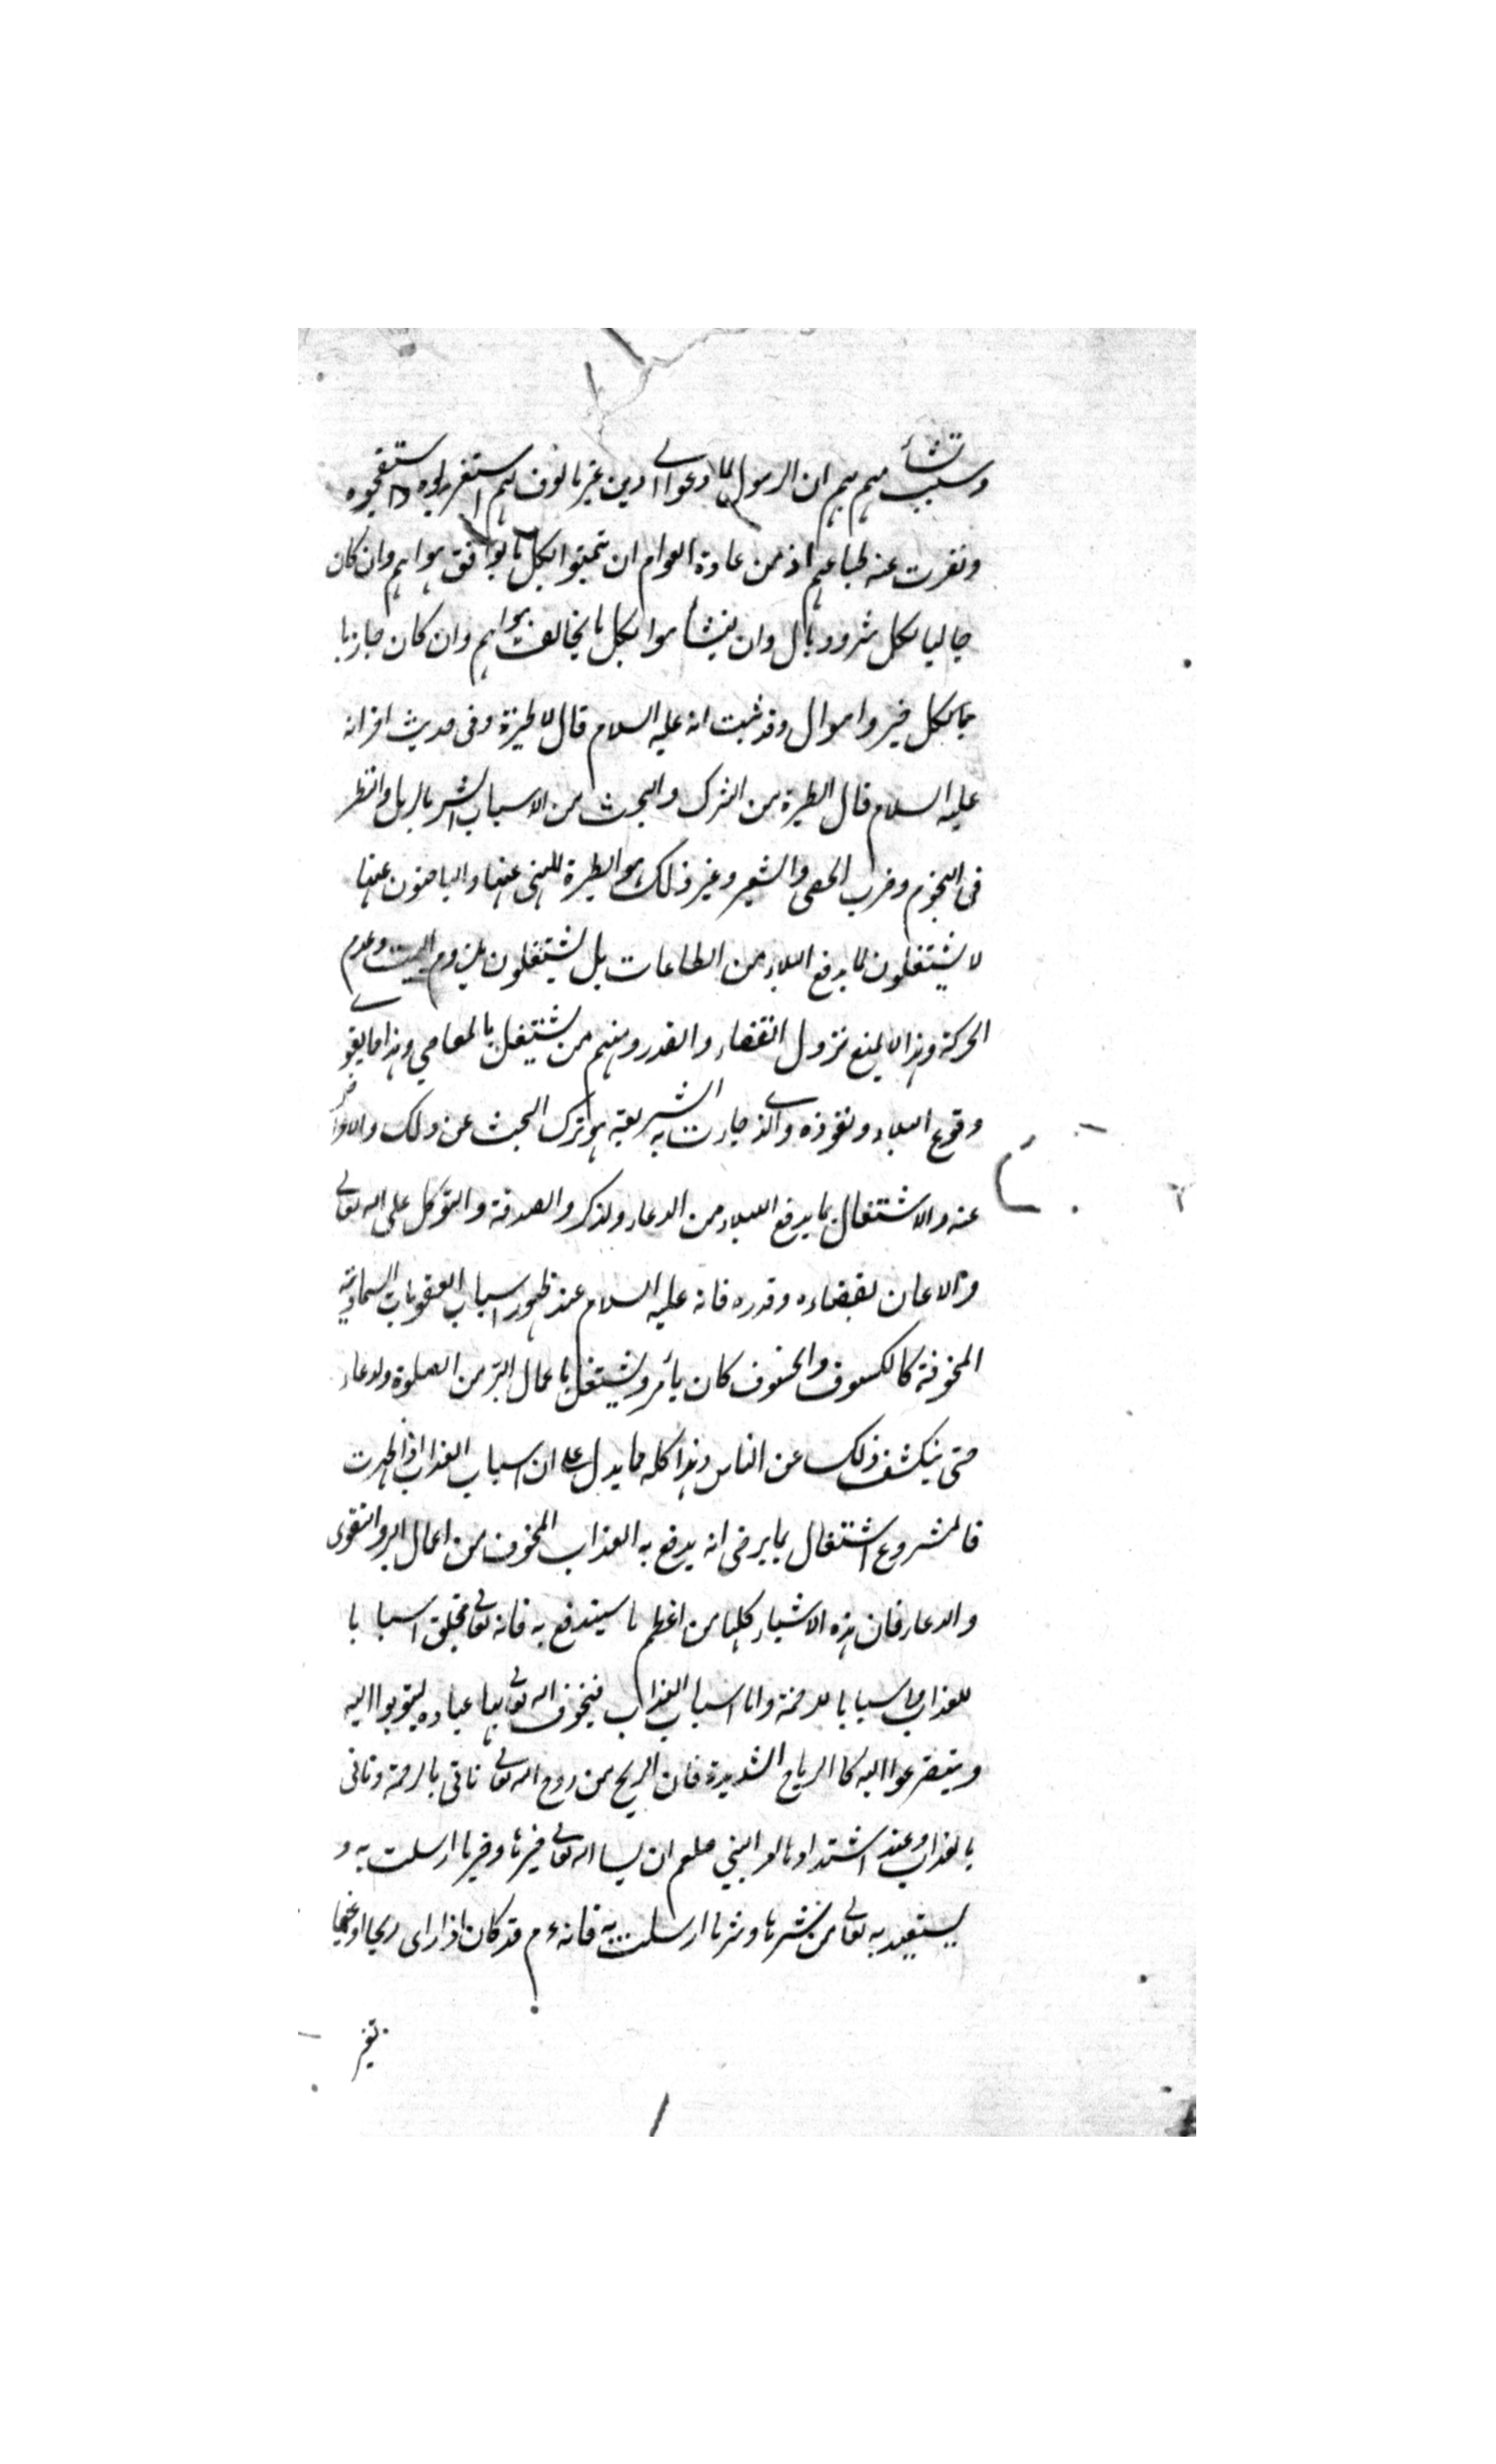 وسبب تشأمهم بهم ان الرسول لما دعوا الى دين غير مالوف لهم استغربوه واستقبحوه
ونفرت عنه طباعهم اذ من عادة العوام ان يتمنوا بكل ما يوافق هواهم وان كان
جالبا لكل شر ووبال وان يتشأموا بكل ما يخالف هواهم وان كان جاذبا
لكل خير واموال وقد ثبت انه عليه السلام قال لا طيرة وفى حديث اخر انه
عليه السلام قال الطيرة من الشرك والبحث من الاسباب الشر بالرمل والنظر
فى النجوم وضرب الحصى والشعير وغير ذلك هو الطيرة المنهى عنها والباحثون عنها
لا يشتغلون لما يدفع البلاء من الطاعات بل يشتغلون بلزوم البيت وعدم
الحركة وهذا لا يمنع نزول القضاء والقدر ومنهم من يشتغل بالمعاصي وهذا مما يقوى
وقوع البلاء ونفوذه والذى جاءت به الشريعة هو ترك البحث عن ذلك والاعراض
عنه والاشتغال بما يدفع البلاء من الدعاء ولذكر والصدقة والتوكل على الله تعالى
والايمان بقضاءه وقدره فانه عليه السلام عند ظهور اسباب العقوبات السماوية
المخوفة كالكسوف والخسوف كان يأمر ويشتغل باعمال البر من الصلوة ولدعاء
حتى ينكشف ذلك عن الناس وهذا كله مما يدل على ان اسباب العذاب اذا ظهرت
فالمشروع اشتغال بما يرضى انه يدفع به العذاب المخوف من اعمال البر والتقوى
والدعاء فان هذه الاشياء كلها من اعظم ما يستدفع به فانه تعالى يخلق اسبابا
للعذاب واسبابا للرحمة واما اسباب العذاب فيخوف الله تعالى بها عباده ليتوبوا اليه
ويتضرعوا اليه كالرياح الشديدة فان الريح من روح الله تعالى تاتى بالرحمة وتاتى
بالعذاب وعند اشتدادها امر النبي صلعم ان يسأل الله تعالى خيرها وخير ما ارسلت به و
يستعيذ به تعالى من شرها وشر ما ارسلت به فانه ءم قد كان اذا راى ريحا او غيما
تغير